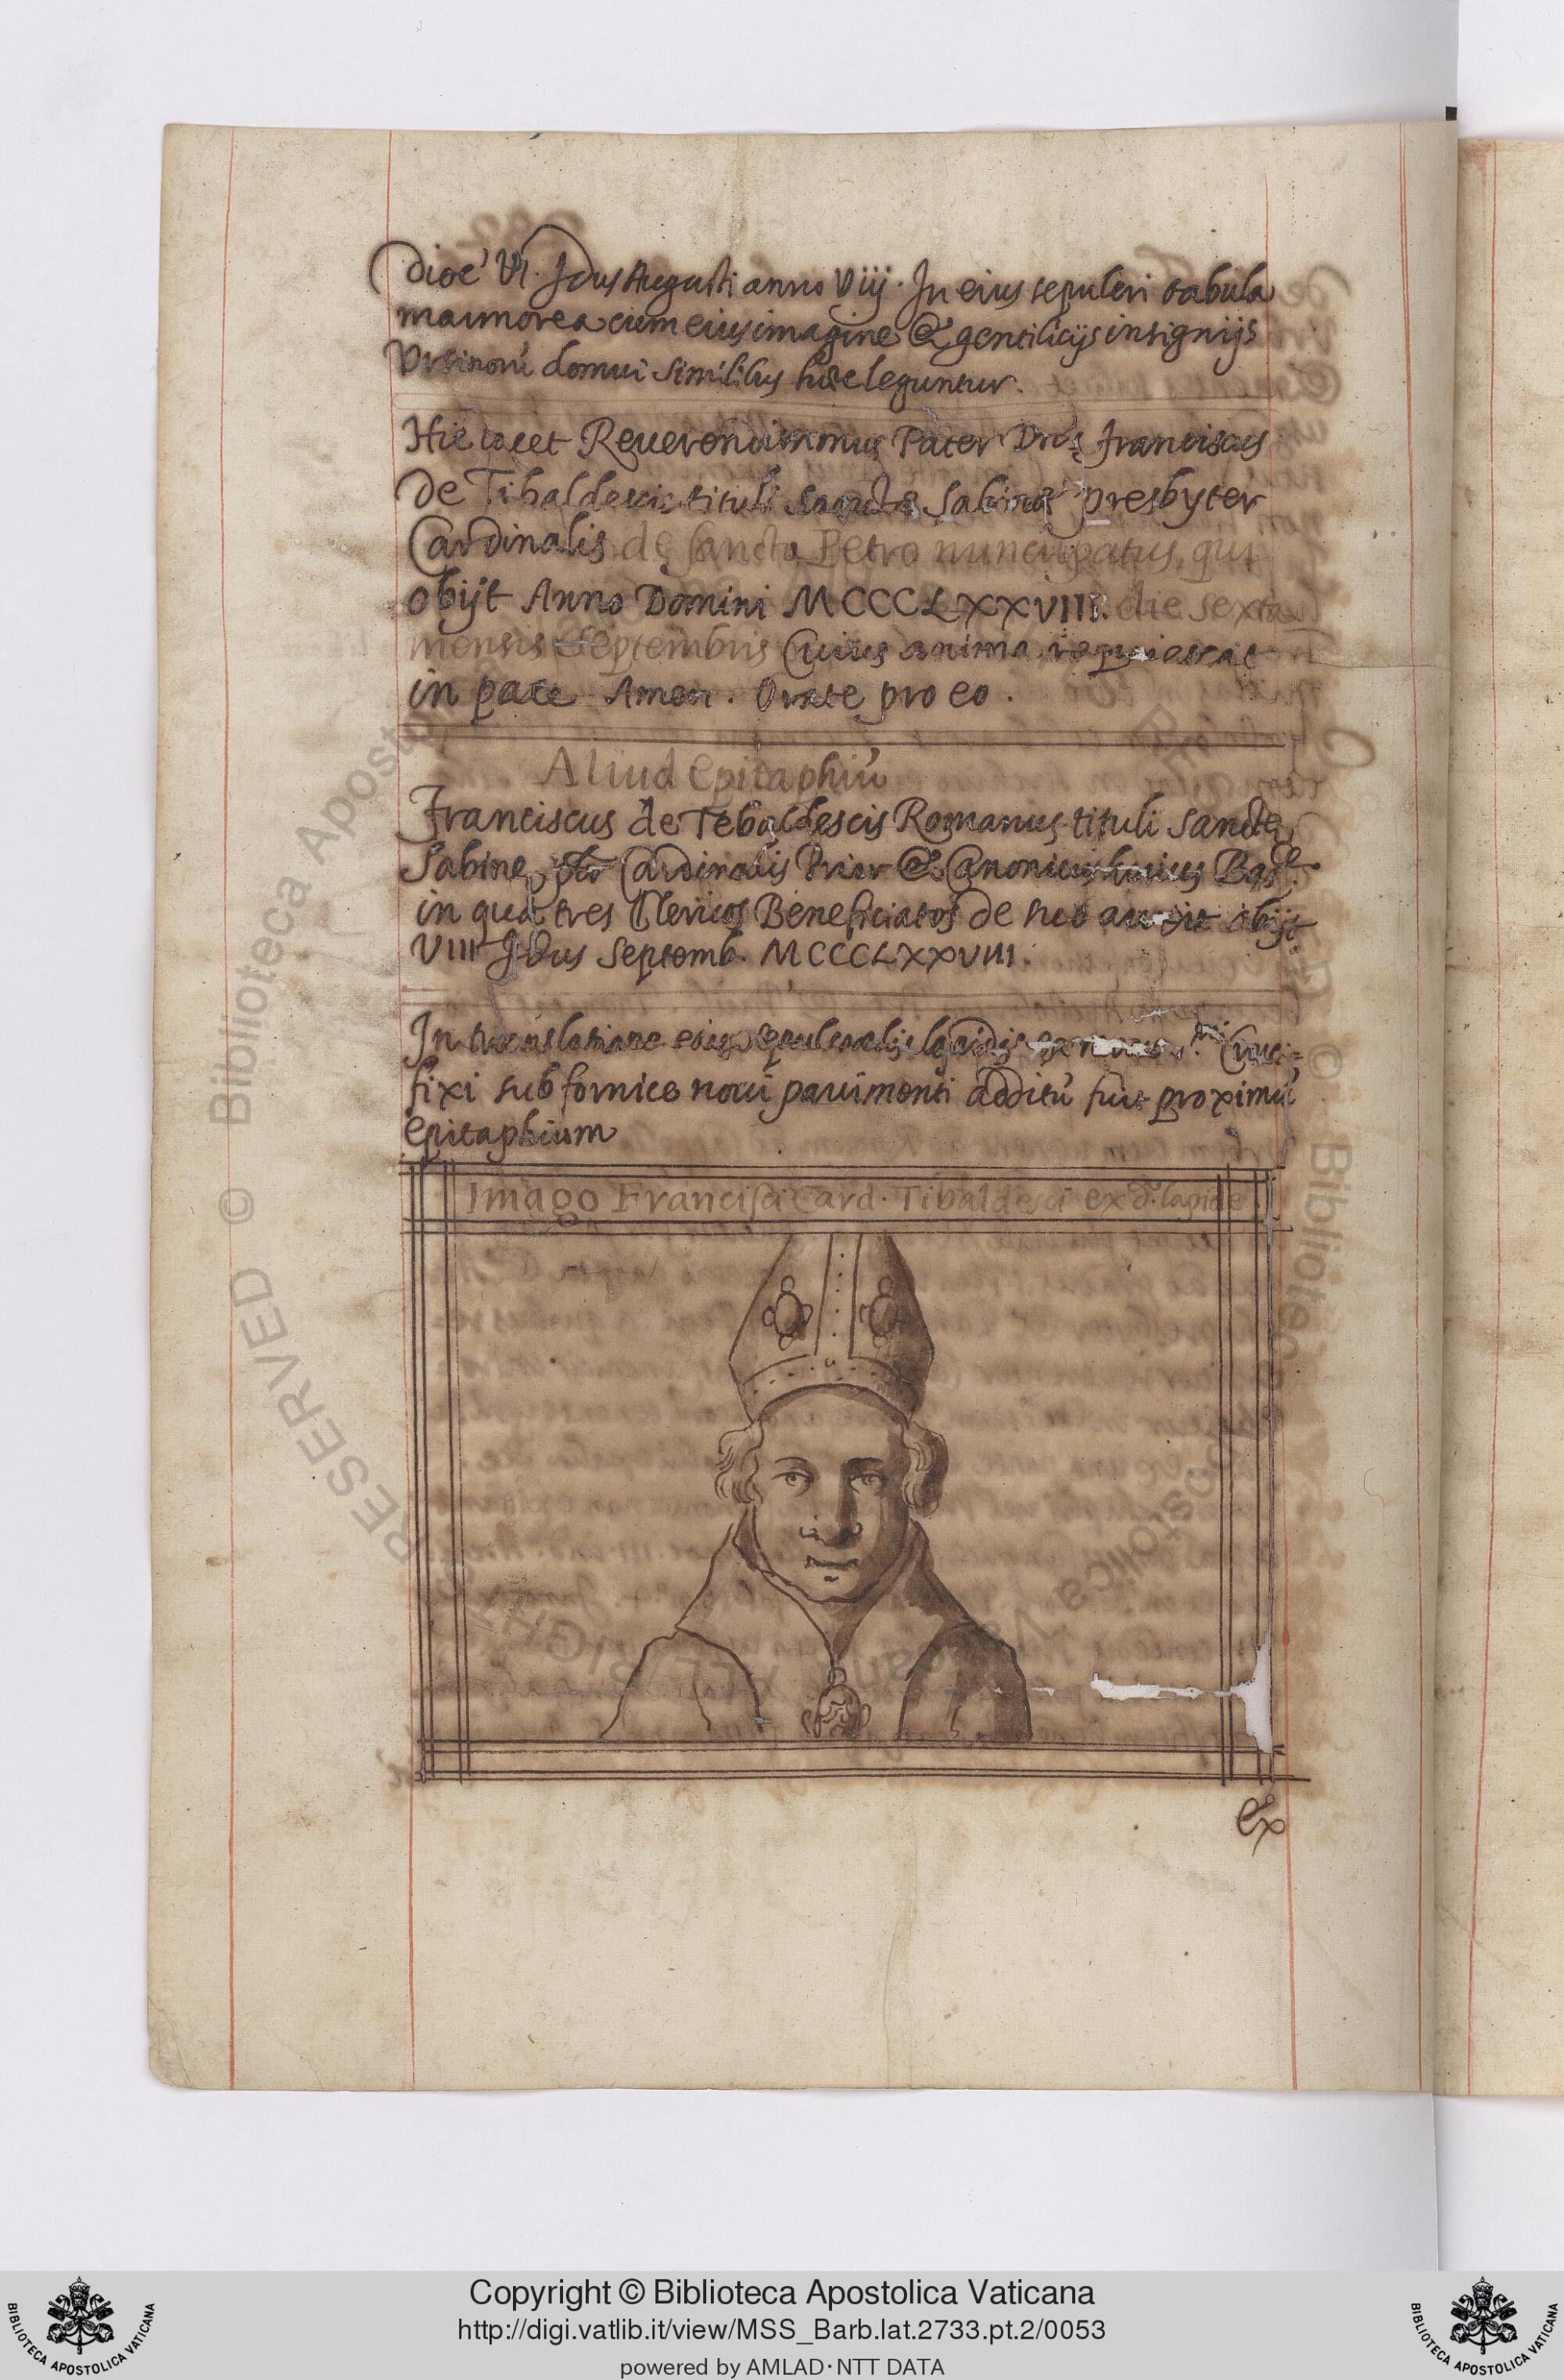 Dioẽ VI. Idus Augusti anno Viij. In eius sepulcri tabula
marmorea cum eius imagine & gentilicijs insignijs
Vrsinorũ domui similibus hæc leguntur.
Hic iacet Reuerendissimus Pater Dñs franciscus
De Tibaldescis tituli Sanctæ Sabinæ presbyter
Cardinalis de sancto Petro nuncupatus, qui
obijt Anno Domini MCCCLXXVIII. die sexta
mensis Septembris Cuius anima requiescat
in pace Amen. Orate pro eo.
Aliud Epitaphiũ
Franciscus de Tebaldescis Romanus tituli Sancte
Sabine pbr Cardinalis Prior & Canonicus huius Basᶜᵉ
in qua tres Clericos Beneficiatos de suo auxit obijt
VIII Idus Septemb. MCCCLXXVIII.
In translatione eius sepulcralis lapidis Cruci=
fixi sub fornice noui pauimenti additũ fuit proximũ
epitaphium
Imago Francisci Card. Tibaldesci ex d. lapide
ex
RESERVED © Biblioteca Apostolica Vaticana
ALL RIGHTS RESERVED © Biblioteca Apostolica Vaticana
Copyright © Biblioteca Apostolica Vaticana
http://digi.vatlib.it/view/MSS_Barb.lat.2733.pt.2/0053
powered by AMLAD·NTT DATA
BIBLIOTECA APOSTOLICA VATICANA
BIBLIOTECA APOSTOLICA VATICANA